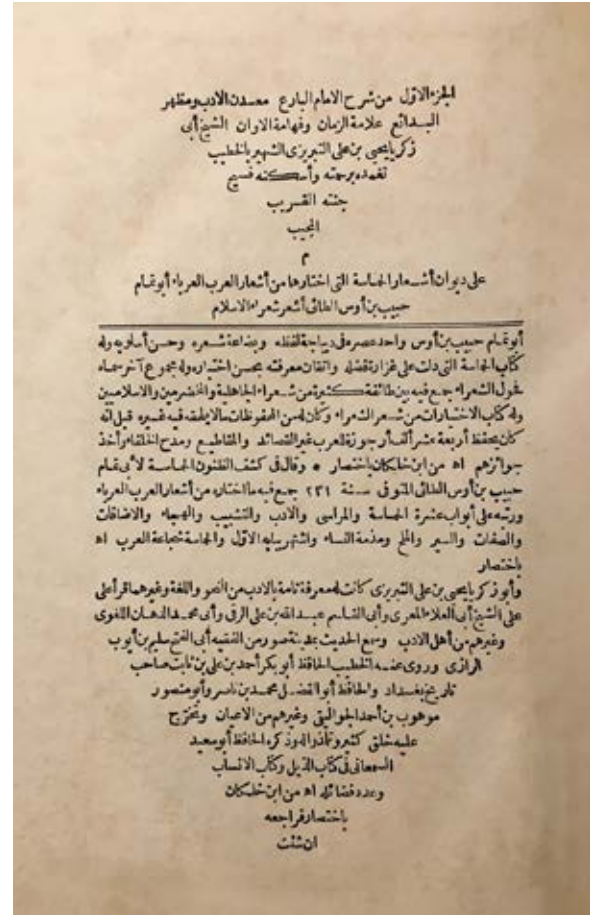 الجزء الاول من شرح الامام البارع معدن الادب ومظهر
البدائع علامة الزمان وفهامة الاوان الشيخ أبى
زكريا يحيى بن على التبريزى الشهير بالخطيب
تغمده برحمته وأسكنه فسيح
جنته القريب
المجيب
م
على ديوان أشعار الحماسة التى اختارها من أشعار العرب العرباء أبو تمام
حبيب بن أوس الطائى أشعر شعراء الاسلام
أبو تمام حبيب بن أوس واحد عصره فى ديباجة لفظه وبضاعة شعره وحسن أسلوبه وله
كتاب الحماسة التى دلت على غزارة فضله واتقان معرفته بحسن اختياره وله مجموع آخر سماه
فحول الشعراء جمع فيه بين طائفة كثيرة من شعراء الجاهلية والمخضرمين والاسلاميين
وله كتاب الاختيارات من شعر الشعراء وكان له من المحفوظات مالا يلحقه فيه غيره قيل انه
كان يحفظ أربعة عشر ألف أرجوزة للعرب غير القصائد والمقاطيع ومدح الخلفاء وأخذ
جوائزهم اه من ابن خلكان باختصار * وقال فى كشف الظنون الحماسة لأبى تمام
حبيب بن أوس الطائى المتوفى سنة ٢٣١ جمع فيه ما اختاره من أشعار العرب العرباء
ورتبه على أبواب عشرة الحماسة والمراثى والادب والتشبيب والهجاء والاضافات
والصفات والسير والملح ومذمة النساء واشتهر ببابه الاول والحماسة شجاعة العرب اه
باختصار
وأبو زكريا يحيى بن على التبريزى كانت له معرفة تامة بالادب من النحو واللغة وغيرهما قرأ على
على الشيخ أبى العلاء المعرى وأبى القاسم عبيد الله بن على الرقى وأبى محمد الدهان اللغوى
وغيرهم من أهل الادب وسمع الحديث بمدينة صور من الفقيه أبى الفتح سليم بن أيوب
الرازى وروى عنه الخطيب الحافظ أبو بكر أحمد بن على بن ثابت صاحب
تاريخ بغداد والحافظ أبو الفضل محمد بن ناصر وأبو منصور
موهوب بن أحمد الجواليقى وغيرهم من الاعيان وتخرج
عليه خلق كثير وتلمذوا له وذكره الحافظ أبو سعيد
السمعانى فى كتاب الذيل وكتاب الانساب
وعدد فضائله اه من ابن خلكان
باختصار فراجعه
ان شئت